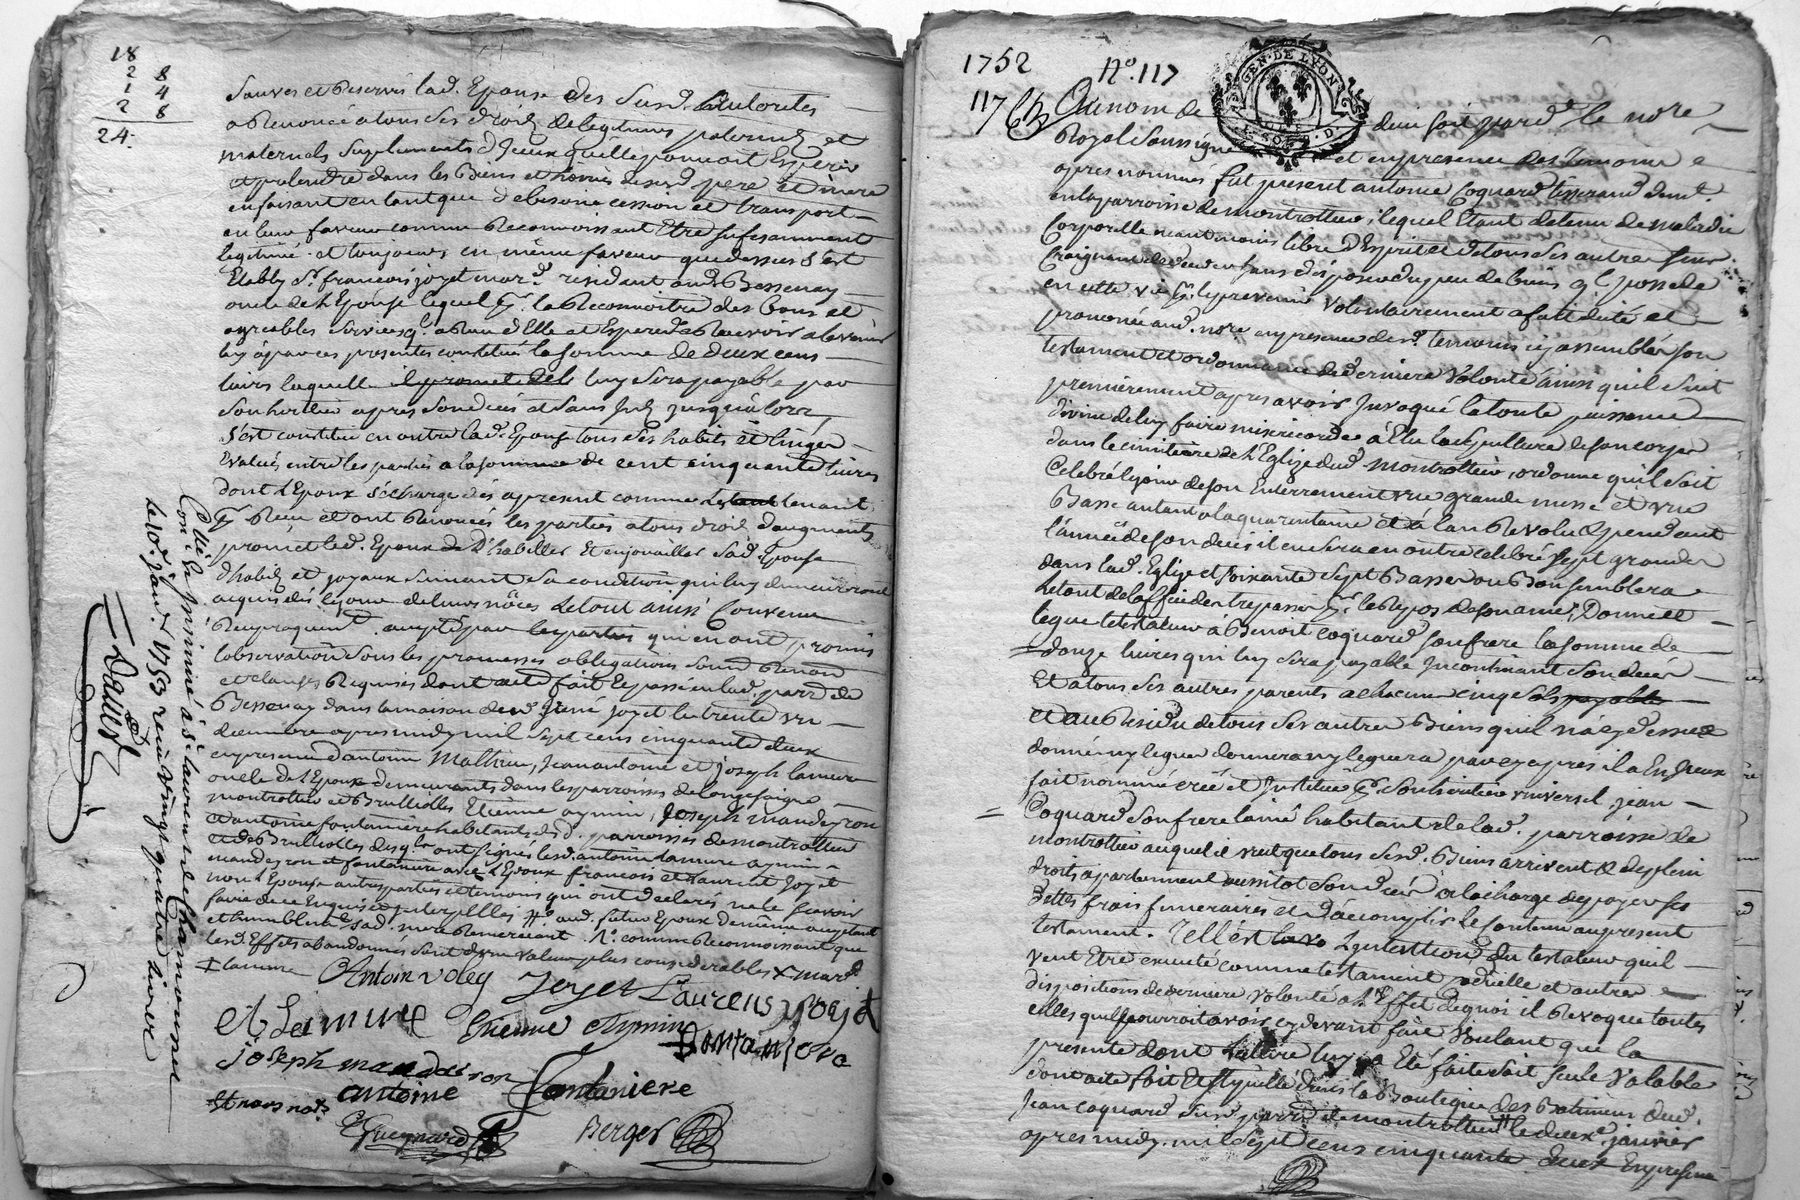 18
2 8
1 4
2 8
24.
Sauves et Reservés lad. Epouse des Susd. authorités
a Renoncé a tous ses droits de legitimes paternels et
maternels suplements d'jceux quelle pouvoit Esperer
et pretendre dans les Biens et hoiries desesd. pere et mere
en faisant en tant que de besoin cession et transport
en leur faveur comme Reconnoissant Etre sufisamment
legitimé. et toujours en même faveur que dessus s'est
Etably Sr. francois joyet mard. resident aud. Bessenay
oncle de l'Epouse lequel pr. la Reconnoitre des bons et
agreables services q. a Reçu d'Elle et Espere de Recevoir a l'avenir
luy a par ces presentes constitué la somme de deux cens
livres laquelle il promet luy sera payable par
son heritier apres son decés et sans jnt. jusqu'a lors
s'est constitué en outre lad. Epouse tous ses habits et linges
Evalués entre les parties a la somme de cent cinquante livres
dont l'Epoux s'echarge dés apresent comme tenant
pr. Reçu et ont Renoncés les parties a tous droits d'augments
promet led. Epoux de d'habiller Et enjoyailler sad. Epouse
d'habits et joyaux suivant sa condition qui luy demeureront
acquis dés le jour de leurs nôces le tout ainsi Convenu
Reciproquemt. accepté par les parties qui en ont promis
l'observation sous les promesses obligations soum. Renon.
et clauses Requises dont acte fait Et passé en lad. parr. de
Bessenay dans la maison dud. Sr. joyet le trente un
decembre apres midy mil sept cens cinquante deux
en presence d'antoine Mathieu, jean antoine et joseph lamure
oncle de l'Epoux demeurants dans les parroisses de longesaigne
montrottier et Brullioles Etienne aymin, joseph mandeyron
et antoine fontaniere habitants desd. parroisses de montrottier
et de Brullioles desqls. ont signés lesd. antoine lamure aymin
mandeyron et fontaniere avec l'Epoux francois et laurent joyet
non l'Epouse autres parties et temoins qui ont declarés ne le scavoir
faire de ce Enquis et jnterpellés
et humblemt. sad. mere Remerciant
lesd. Effets abandonnés sont d'une valeur plus considerables
lamure Antoin voley Joyet Laurens joyet
At Lamure Etienne Aymin
joseph mandeiron
antoine fontaniere
Et nous not.
Guignard Berger
Collé. et jnsinué à St. laurent de Chamousset
le 10e. janvr. 1753 reçu vingt quatre livres
1752 No. 117
117
Au nom de dieu soit par devt. le nore.
Royal soussigné et en presence des temoins cy
apres nommés fut present antoine Coquard tisserand demt.
en la parroisse de montrottier, lequel Etant detenu de maladie
corporelle neantmoins libre d'Esprit et de tous ses autres sens
Craignant de deceder sans disposer du peu de biens ql. possede
en cette vie pr. le prevenir volontairement a fait dicté et
prononcé aud. nore. en presence desd. temoins cy assemblés son
testament et ordonnance de derniere volonté ainsi qu'il suit
premierement apres avoir jnvoqué la toute puissance
divine de luy faire misericorde a Elu la sepulture de son corps
dans le cimitiere de l'Eglize dud. montrottier, ordonne qu'il soit
Celebré le jour de son Enterrement une grande messe et une
Basse autant a la quarantaine et à l'an Revolu & pendant
l'année de son decés il en sera en outre celebré sept grandes
dans lad. Eglize et soixante sept Basses ou Bon semblera
le tout de l'office des trepassés pr. le repos de son ame, Donne et
legue le testateur à Benoit Coquard son frere la somme de
douze livres qui luy sera payable jncontinant son decés
Et a tous ses autres parents a chacun cinq sols payable
et au Residu de tous ses autres Biens quil n'a cy dessus
donné ny legué donnera ny leguera par cy apres il a En jceux
fait nommé créé et jnstitué pr. son heritier universel, jean
Coquard son frere l'ainé habitant de lad. parroisse de
montrottier auquel il veut que tous sesd. Biens arrivent & de plein
droits apartiennent aussitot son decés à la charge de payer ses
Dettes frais funeraires et d'accomplir le contenu au present
testament. Telle est la volonté du testateur qu'il
veut Etre executé comme testament codicille et autres
dispositions de derniere volonté a l'Effet de quoi il Revoque toutes
celles quil pourroit avoir cy devant faite voulant que la
presente dont lecture luy a Eté faite soit seule valable
dont acte fait Et stipullé dans la Boutique des Batiments dud.
jean Coquard susd. parr. de montrottier le deuxe. janvier
apres midy. mil sept cens cinquante deux En presence